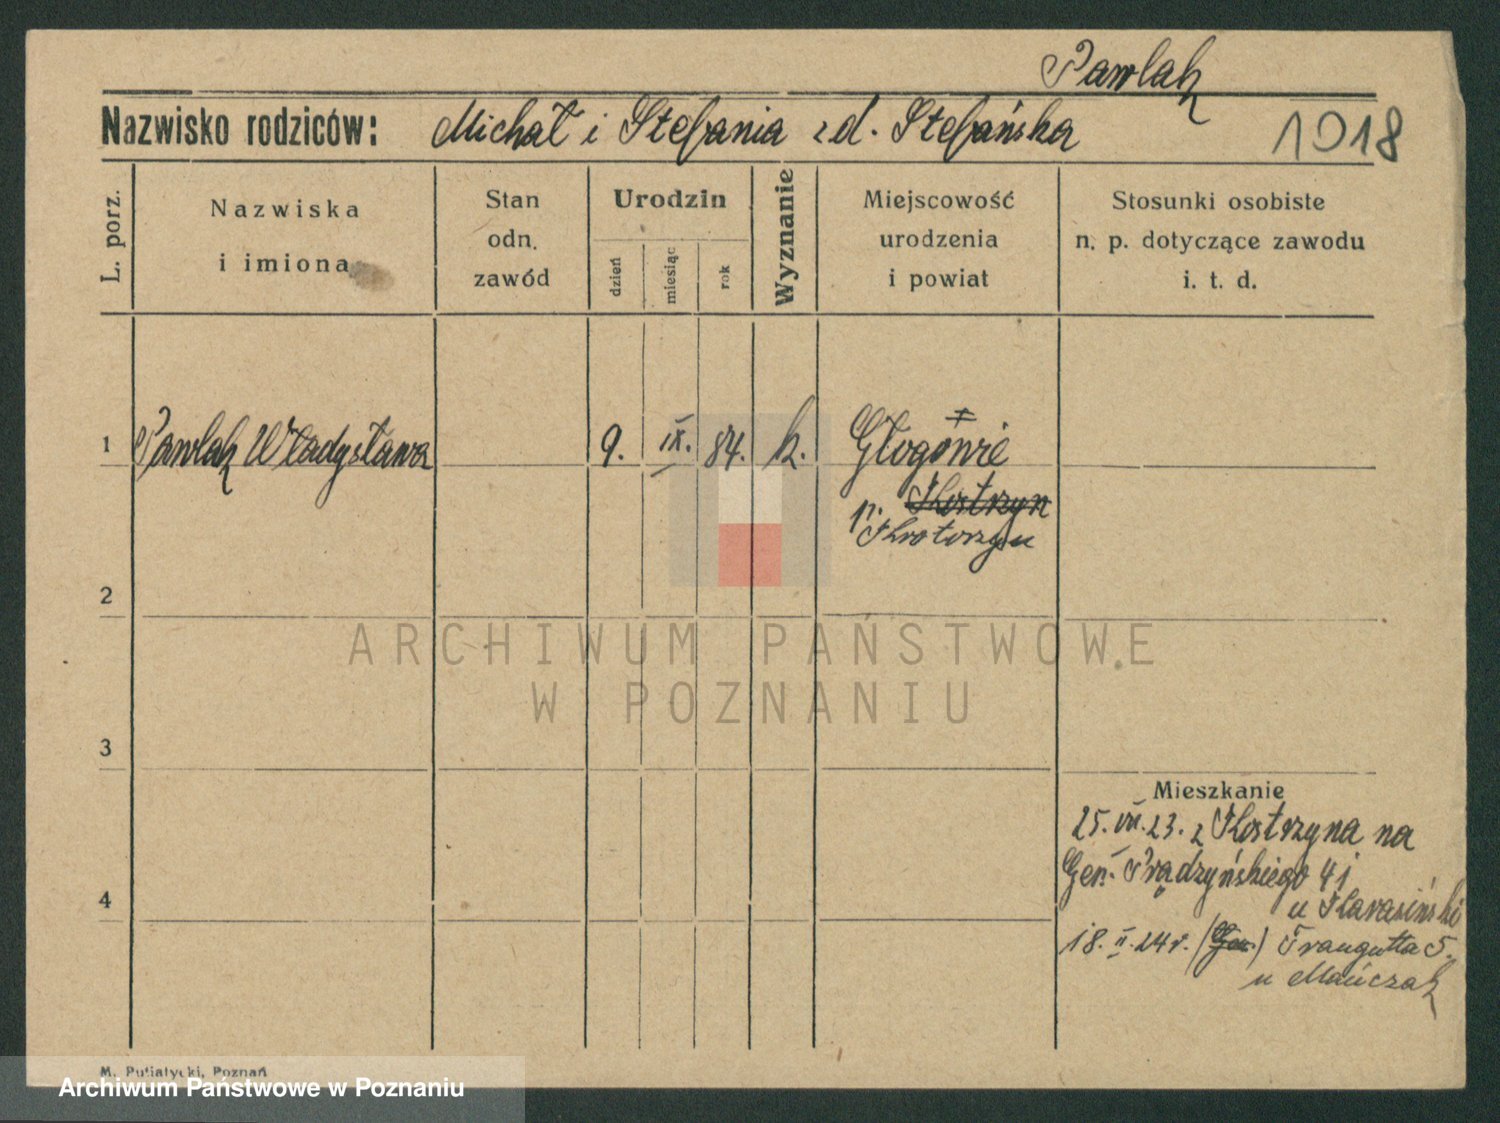 Pawlak
Nazwisko rodziców: Michał i Stefania z d. Stefańska
1018
L. porz.
Nazwiska
i imiona
Stan
odn.
zawód
Urodzin
dzień
miesiąc
rok
Wyznanie
Miejscowość
urodzenia
i powiat
Stosunki osobiste
n. p. dotyczące zawodu
i. t. d.
1 Pawlak Władysława 9. IX. 84. k. Głogowie
p. Kostrzyn
Krotoszyn
2
3
4
Mieszkanie
25. VII. 23. z Kostrzyna na
Gen. Prądzyńskiego 41
u Karasiński
18. II. 24 r. (Gen.) Traugutta 5.
u Mańczak
ARCHIWUM PAŃSTWOWE
W POZNANIU
M. Putiatycki, Poznań
Archiwum Państwowe w Poznaniu